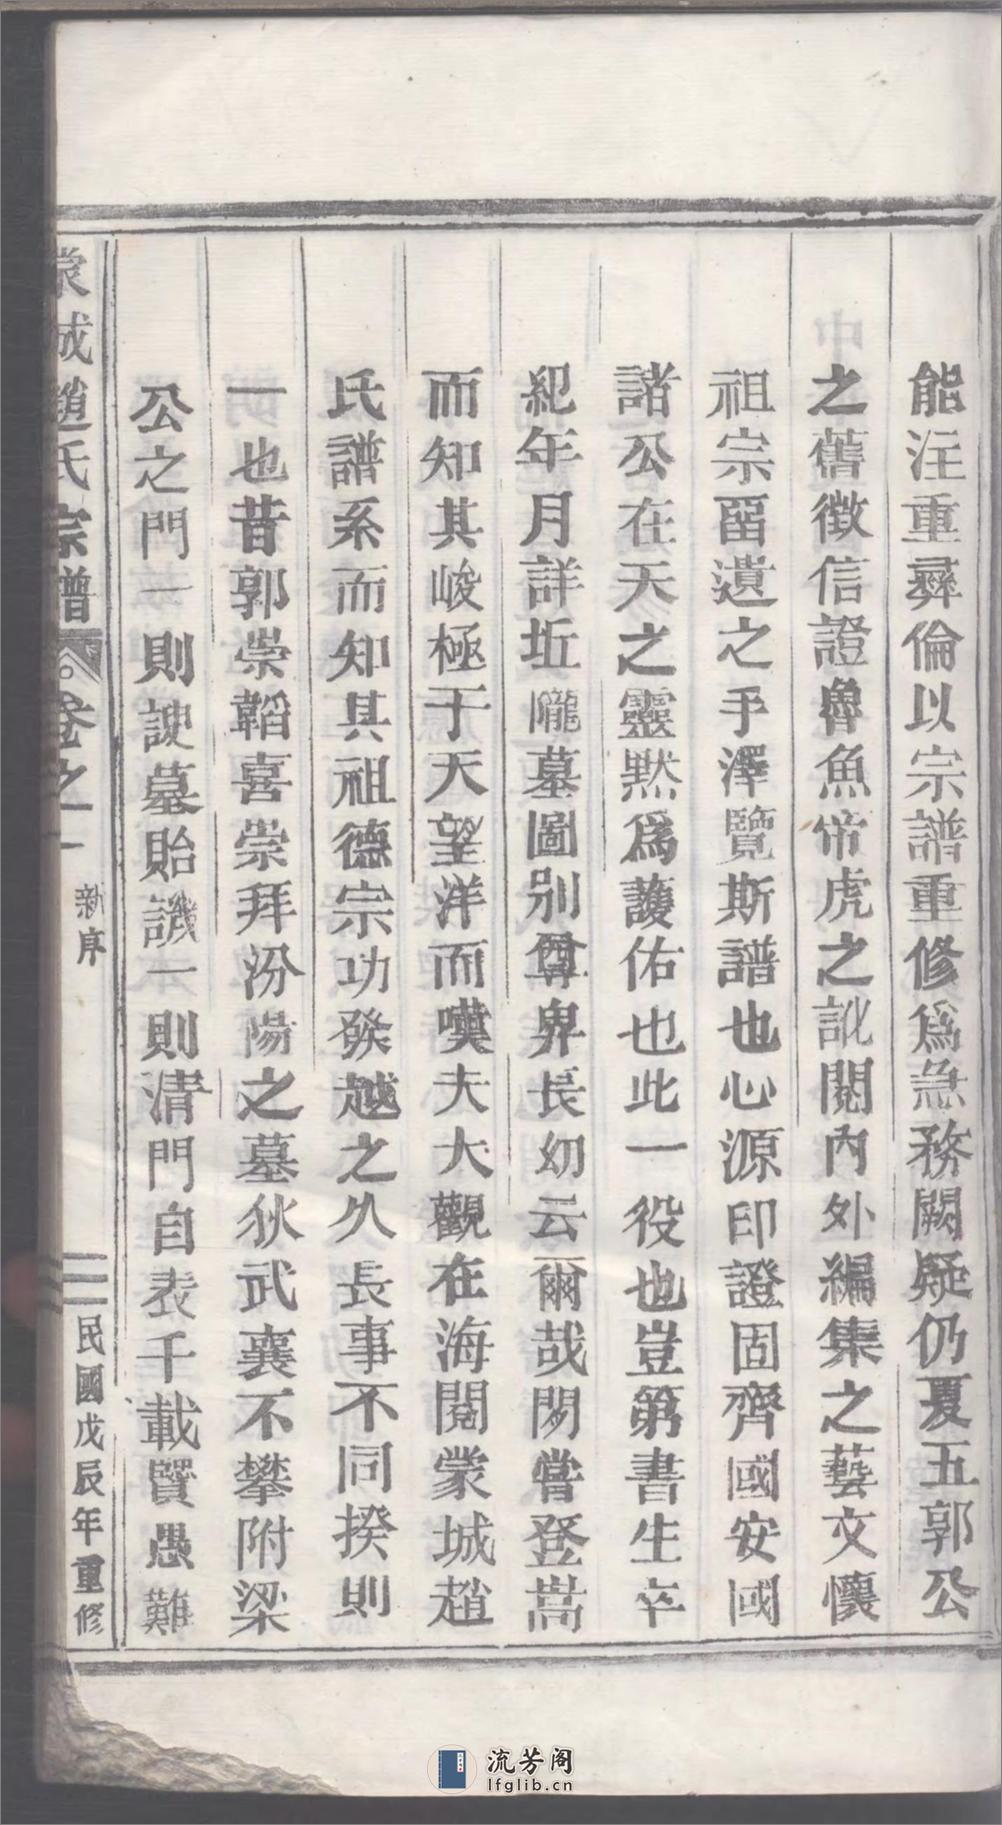 能注重彛倫以宗譜重修爲急務闕疑仍夏五郭公
之舊徵信證魯魚帝虎之訛閱內外編集之藝文懷
祖宗畱遺之手澤覽斯譜也心源印證固齊國安國
諸公在天之靈黙爲護佑也此一役也豈第書生卒
紀年月詳坵隴墓圖别尊卑長幼云爾哉閒嘗登嵩
而知其峻極于天望洋而嘆夫大觀在海閱蒙城趙
氏譜系而知其祖德宗功發越之久長事不同揆則
一也昔郭崇韜喜崇拜汾陽之墓狄武襄不攀附梁
公之門一則諛墓貽譏一則清門自表千載賢愚難
蒙城趙氏宗譜 卷之一 新序 二 民國戊辰年重修
流芳阁
lfglib.cn